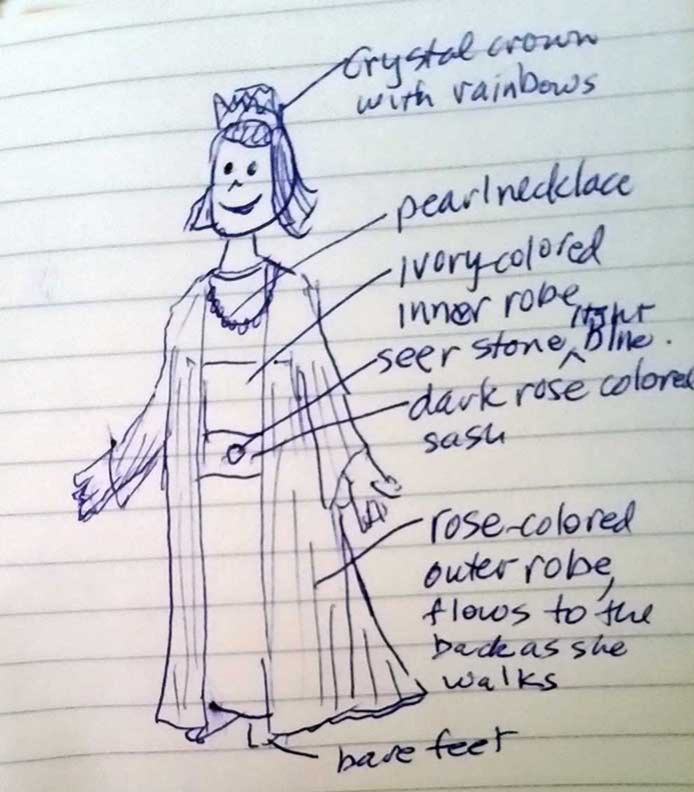 Crystal crown
with rainbows
pearl necklace
Ivory-colored
inner robe
seer stone, light Blue.
dark rose colored
sash
rose-colored
outer robe,
flows to the
back as she
walks
bare feet